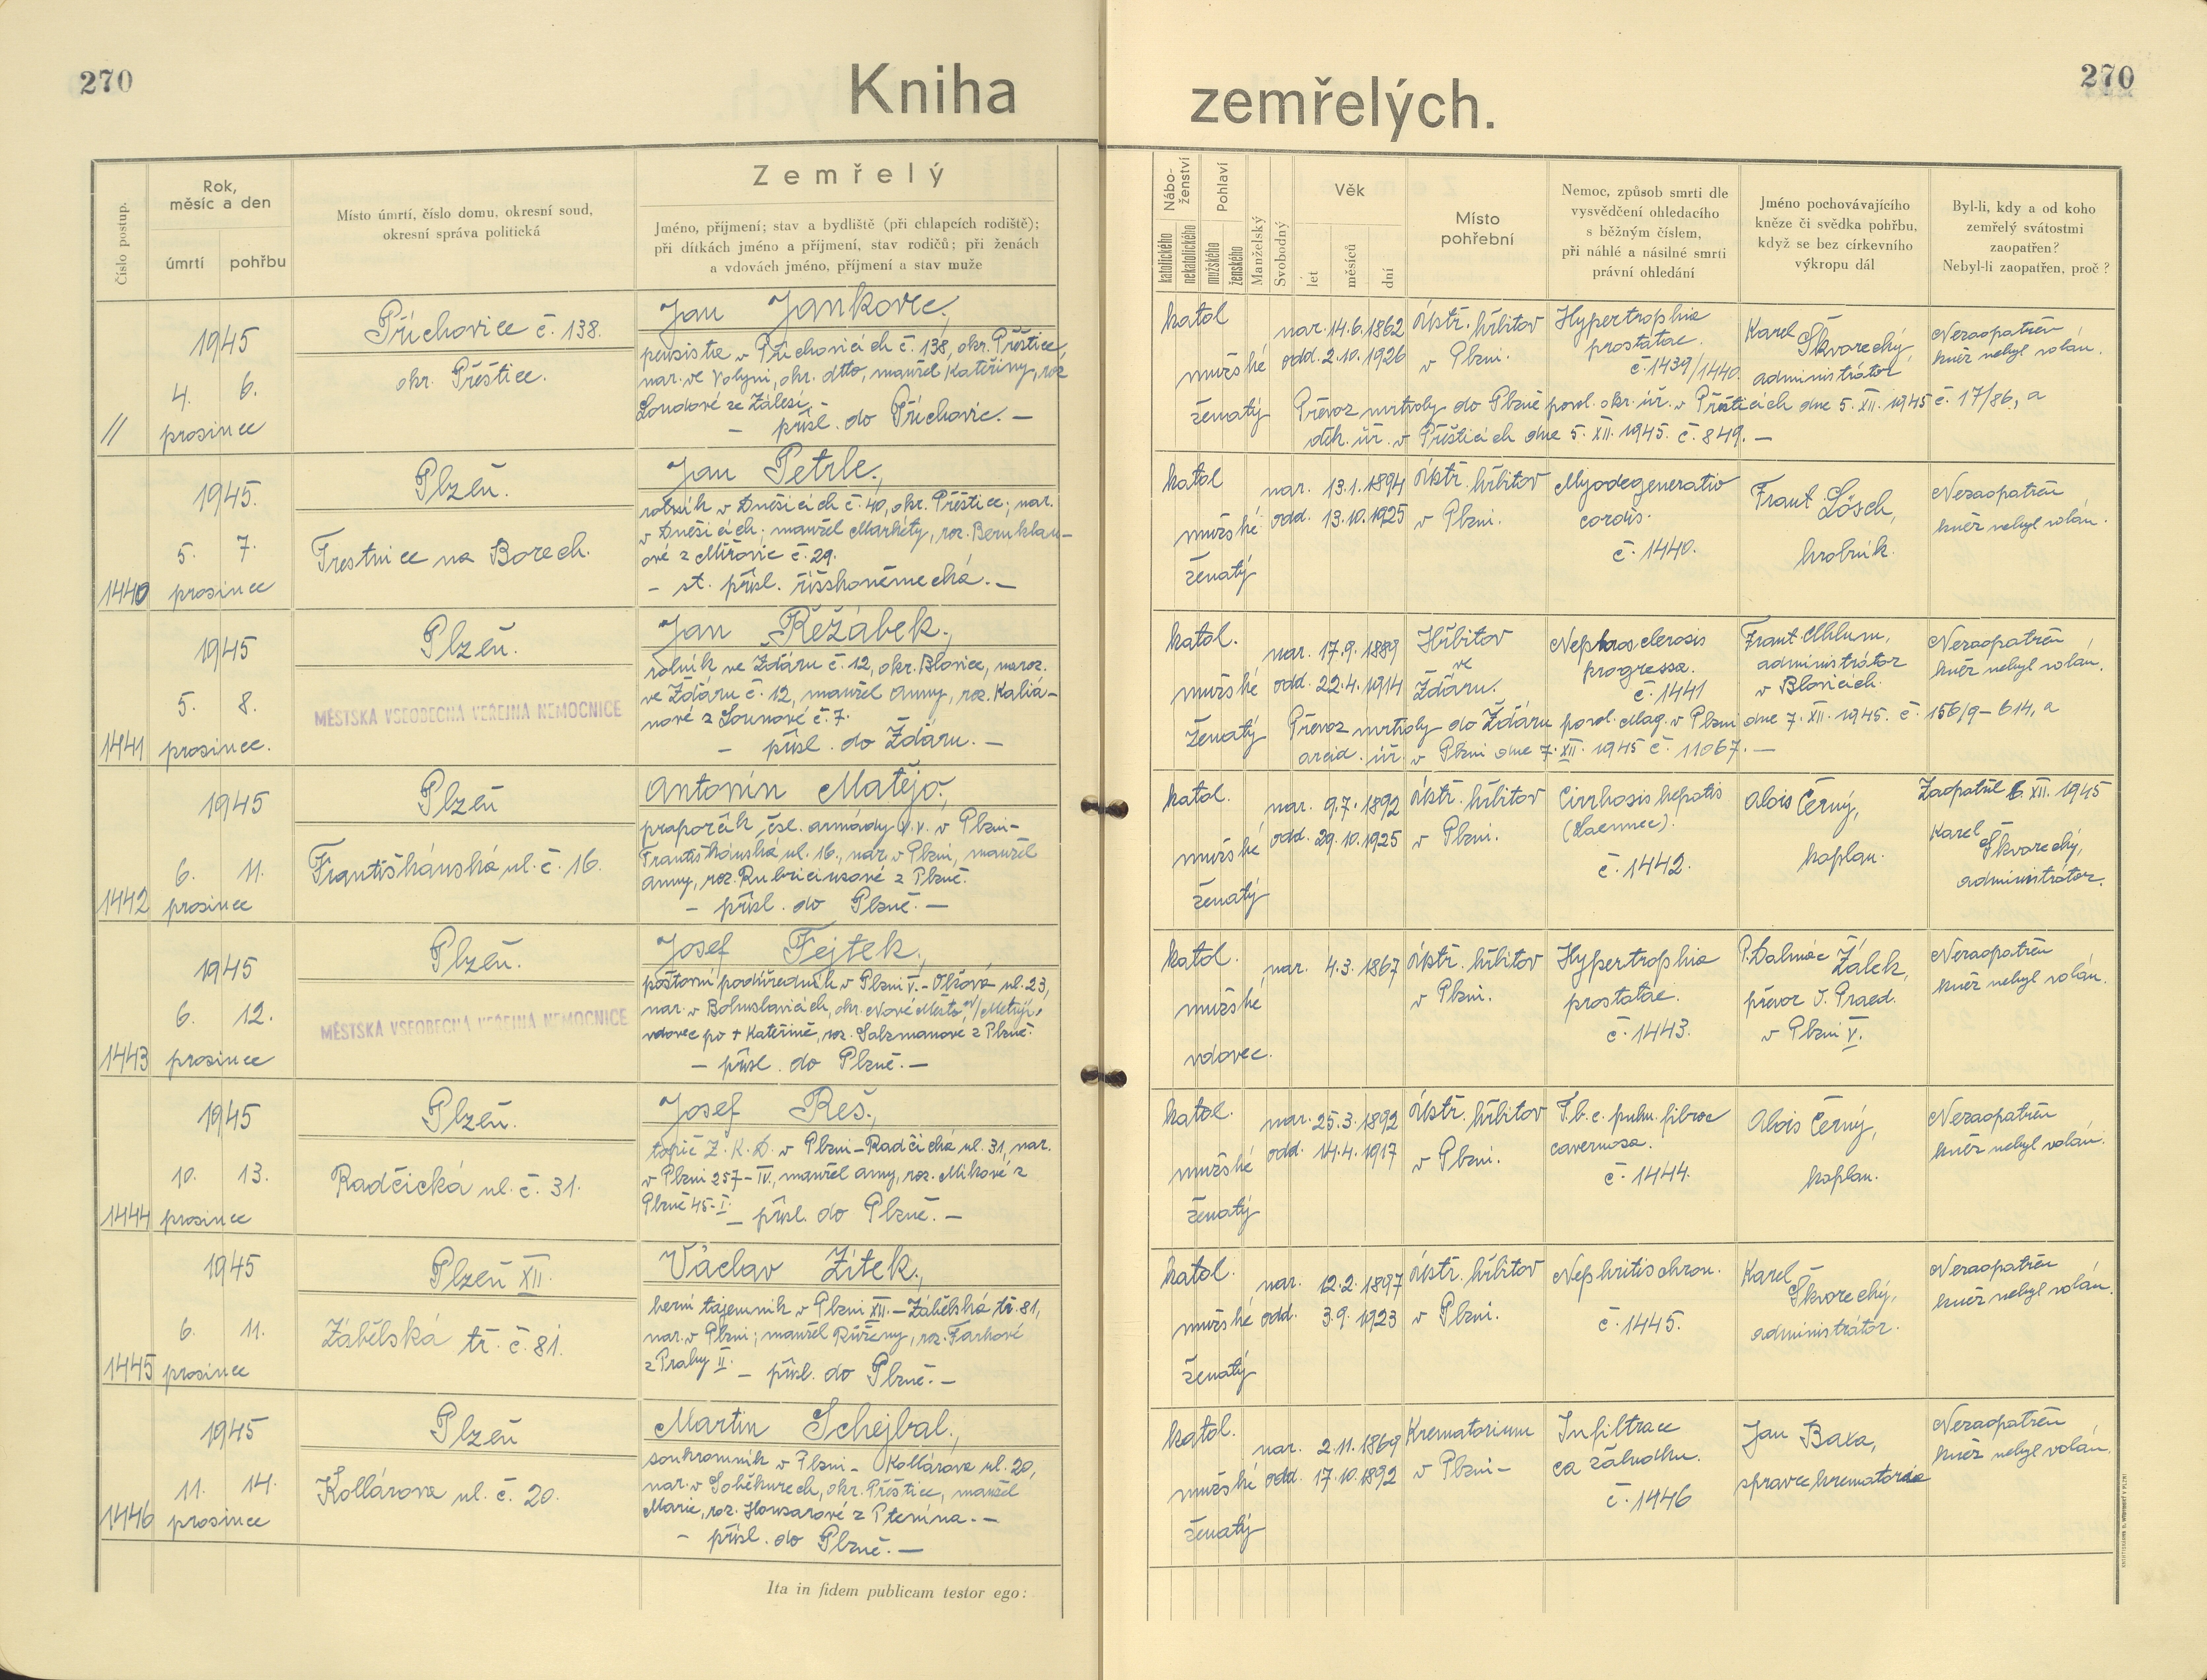 270
Kniha zemřelých.
270
Číslo postup.
Rok,
měsíc a den
úmrtí
pohřbu
Místo úmrtí, číslo domu, okresní soud,
okresní správa politická
Zemřelý
Jméno, příjmení; stav a bydliště (při chlapcích rodiště);
při dítkách jméno a příjmení, stav rodičů; při ženách
a vdovách jméno, příjmení a stav muže
Nábo-
ženství
katolického
nekatolického
Pohlaví
mužského
ženského
Manželský
Svobodný
Věk
let
měsíců
dní
Místo
pohřební
Nemoc, způsob smrti dle
vysvědčení ohledacího
s běžným číslem,
při náhlé a násilné smrti
právní ohledání
Jméno pochovávajícího
kněze či svědka pohřbu,
když se bez církevního
výkropu dál
Byl-li, kdy a od koho
zemřelý svátostmi
zaopatřen?
Nebyl-li zaopatřen, proč?
//
1945
4. 6.
prosince
Příchovice č. 138.
okr. Přeštice.
Jan Jankovec,
pensista v Příchovicích č. 138, okr. Přeštice,
nar. ve Volyni, okr. dtto, manžel Kateřiny, roz.
Loudové ze Zálesí. –
– přísl. do Příchovic. –
katol
mužské
ženatý
nar. 14.6.1862
odd. 2.10.1926
Ústř. hřbitov
v Plzni.
Hypertrophia
prostatae.
č. 1439/1440.
Karel Škvorecký,
administrátor
Nezaopatřen
kněz nebyl volán.
Převoz mrtvoly do Plzně povol. okr. úř. v Přešticích dne 5. XII. 1945 č. 17/86, a
děk. úř. v Přešticích dne 5. XII. 1945. č. 849. –
1440
1945.
5. 7.
prosince
Plzeň.
Trestnice na Borech.
Jan Petrle,
rolník v Dnešicích č. 40, okr. Přeštice; nar.
v Dnešicích; manžel Markéty, roz. Bernklau-
ové z Mířovic č. 29.
– st. přísl. říšskoněmecká. –
katol
mužské
ženatý
nar. 13.1.1894
odd. 13.10.1925
Ústř. hřbitov
v Plzni.
Myodegeneratio
cordis.
č. 1440.
Frant. Lösch,
hrobník.
Nezaopatřen
kněz nebyl volán.
1441
1945
5. 8.
prosince.
Plzeň.
MĚSTSKÁ VŠEOBECNÁ VEŘEJNÁ NEMOCNICE
Jan Řežábek,
rolník ve Žďáru č. 12, okr. Blovice, naroz.
ve Žďáru č. 12, manžel Anny, roz. Kaliá-
nové z Lounové č. 7.
– přísl. do Žďáru. –
katol.
mužské
ženatý
nar. 17.9.1889
odd. 22.4.1914
Hřbitov
ve
Žďáru.
Nephrosclerosis
progressa.
č. 1441
Frant. Chlum,
administrátor
v Blovicích.
Nezaopatřen
kněz nebyl volán.
Převoz mrtvoly do Žďáru povol. Mag. v Plzni dne 7. XII. 1945. č. 156/9–614, a
arcid. úř. v Plzni dne 7. XII. 1945 č. 11067. –
1442
1945
6. 11.
prosince
Plzeň
Františkánská ul. č. 16.
Antonín Matějo,
praporčík čsl. armády v. v. v Plzni–
Františkánská ul. 16., nar. v Plzni, manžel
Anny, roz. Rubriciusové z Plzně.
– přísl. do Plzně. –
katol.
mužské
ženatý
nar. 9.7.1892
odd. 29.10.1925
Ústř. hřbitov
v Plzni.
Cirrhosis hepatis
(Laennec).
č. 1442.
Alois Černý,
kaplan.
Zaopatřil 6. XII. 1945
Karel Škvorecký,
administrátor.
1443
1945
6. 12.
prosince
Plzeň.
MĚSTSKÁ VŠEOBECNÁ VEŘEJNÁ NEMOCNICE
Josef Fejtek,
poštovní podúředník v Plzni V.– ul. 23,
nar. v Bohuslavicích, okr. Nové Město n/Metují,
vdovec po + Kateřině, roz. Salzmanové z Plzně.
– přísl. do Plzně. –
katol.
mužské
vdovec.
nar. 4.3.1867
Ústř. hřbitov
v Plzni.
Hypertrophia
prostatae.
č. 1443.
P. Dalmác Žálek,
převor O. Praed.
v Plzni V.
Nezaopatřen
kněz nebyl volán.
1444
1945
10. 13.
prosince
Plzeň.
Radčická ul. č. 31.
Josef Reš,
topič Z. K. D. v Plzni–Radčická ul. 31, nar.
v Plzni 257–IV., manžel Anny, roz. Mikové z
Plzně 45–I. – přísl. do Plzně. –
katol.
mužské
ženatý
nar. 25.3.1892
odd. 14.4.1917
Ústř. hřbitov
v Plzni.
T.b.c. pulm. fibroc
cavernosa.
č. 1444.
Alois Černý,
kaplan.
Nezaopatřen
kněz nebyl volán.
1445
1945
6. 11.
prosince
Plzeň XII.
Zábělská tř. č. 81.
Václav Žítek,
berní tajemník v Plzni XII.–Zábělská tř. 81,
nar. v Plzni; manžel Růženy, roz. Farkové
z Prahy II. – přísl. do Plzně. –
katol.
mužské
ženatý
nar. 12.2.1897
odd. 3.9.1923
Ústř. hřbitov
v Plzni.
Nephritis chron.
č. 1445.
Karel Škvorecký,
administrátor.
Nezaopatřen
kněz nebyl volán.
1446
1945
11. 14.
prosince
Plzeň
Kollárova ul. č. 20.
Martin Schejbal,
soukromník v Plzni– Kollárova ul. 20,
nar. v Soběkurech, okr. Přeštice, manžel
Marie, roz. Housarové z Ptenína. –
– přísl. do Plzně. –
katol.
mužské
ženatý
nar. 2.11.1869
odd. 17.10.1892
Krematorium
v Plzni–
Infiltrace
ca žaludku.
č. 1446
Jan Baxa,
správce krematoria
Nezaopatřen
kněz nebyl volán.
Ita in fidem publicam testor ego: